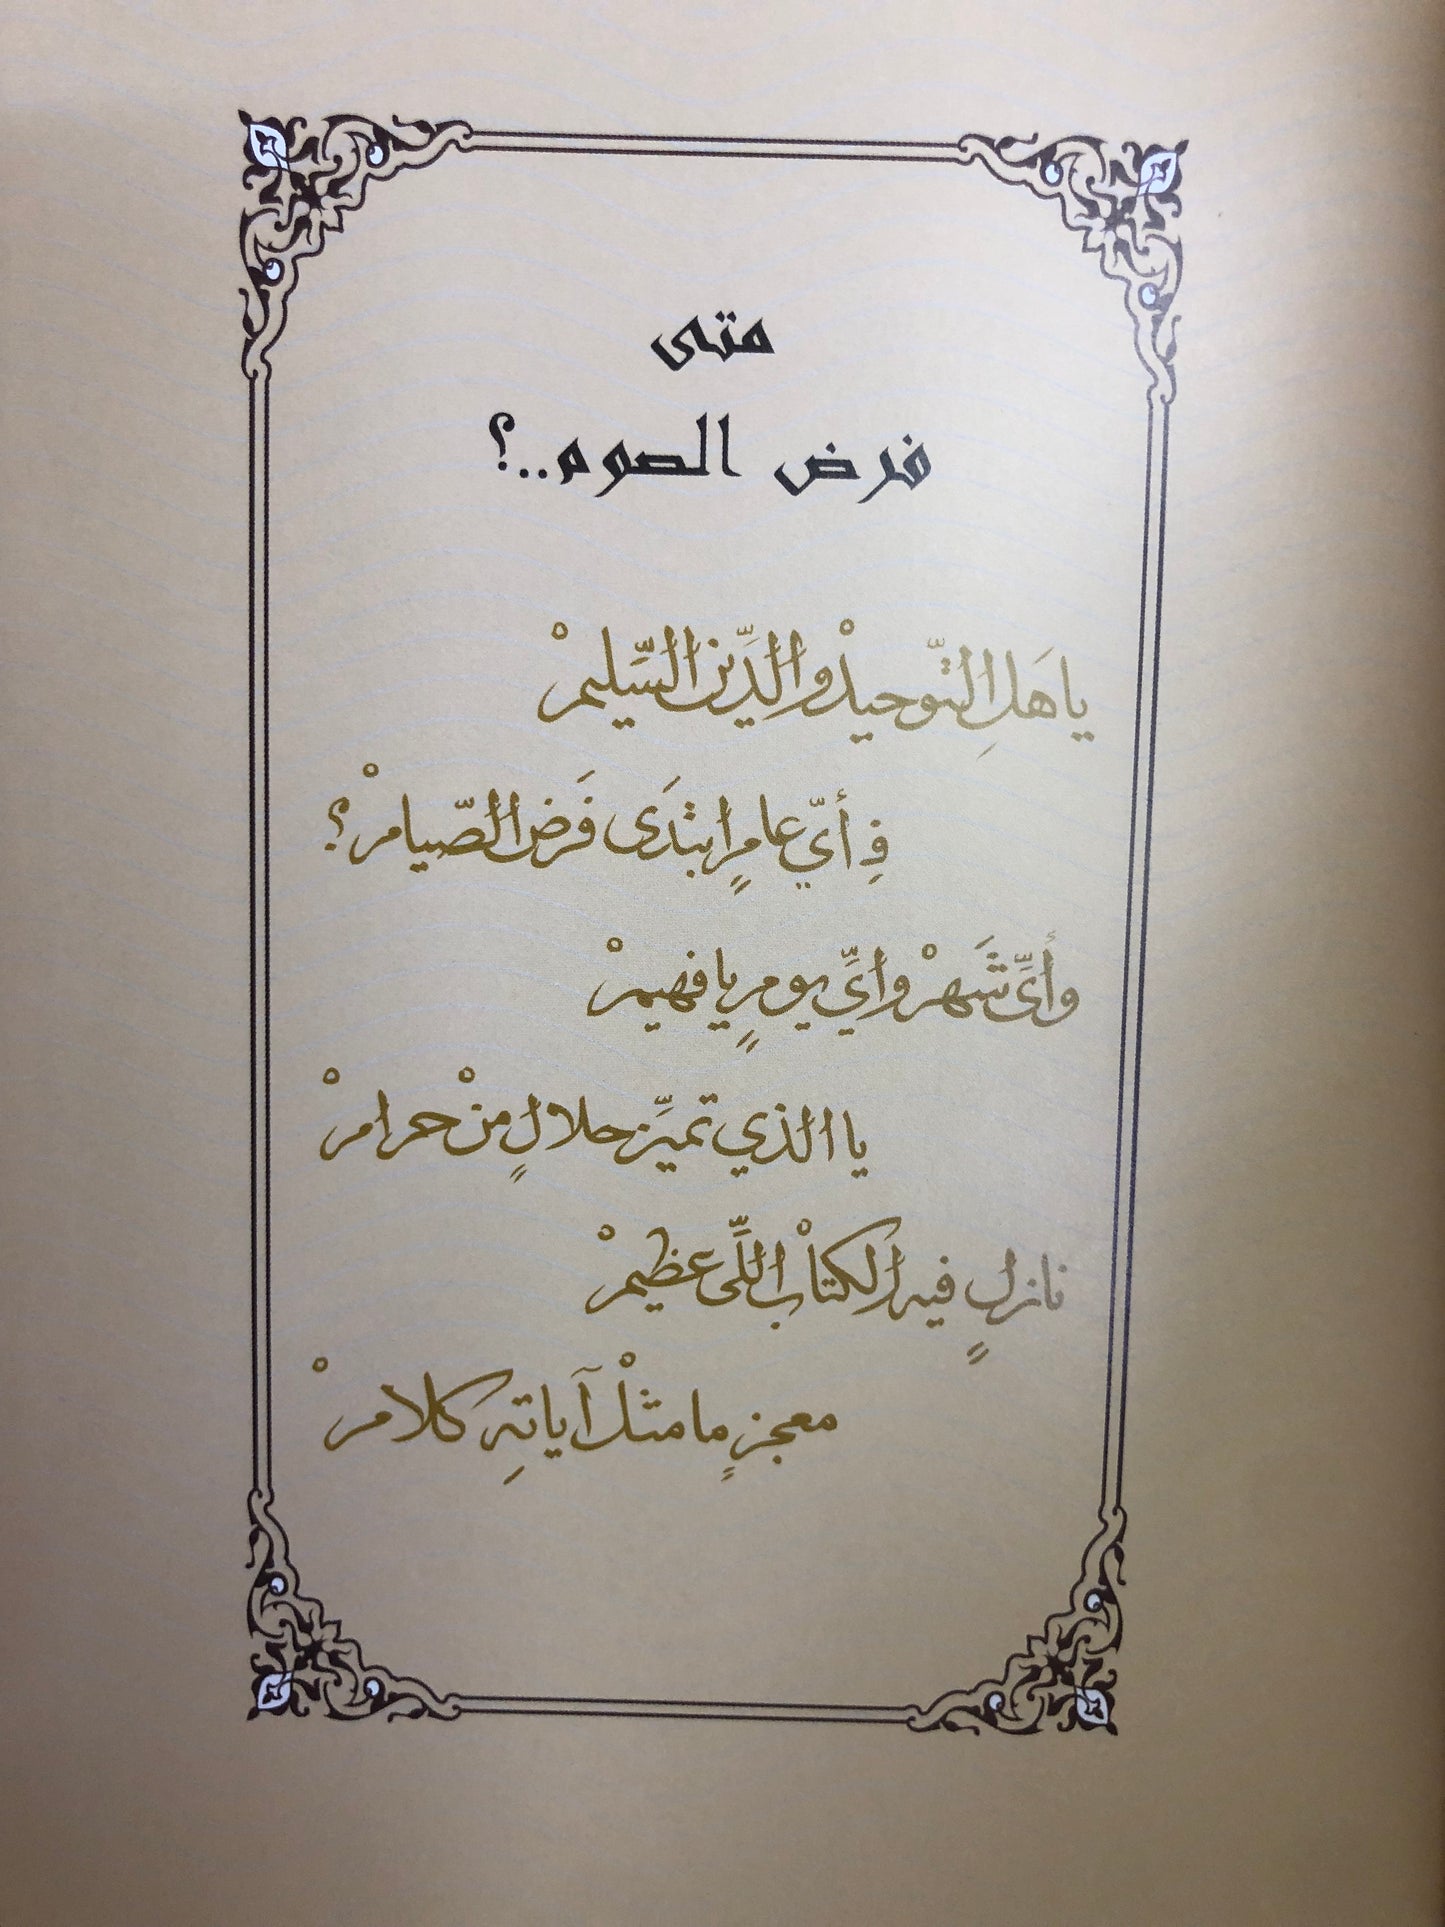 متى
فرض الصوم..؟
ياهَلِ التّوحيدْ والدِّين السّليمْ
فِ أيّ عامٍ ابتدَى فَرض الصّيامْ؟
وأيِّ شَهرْ وايِّ يومٍ يا فهيمْ
يا الذي تميِّز حلالٍ منْ حرامْ
نازلٍ فيه الكتابْ اللِّى عظيمْ
معجزٍ ما مثلْ آياتهِ كلامْ